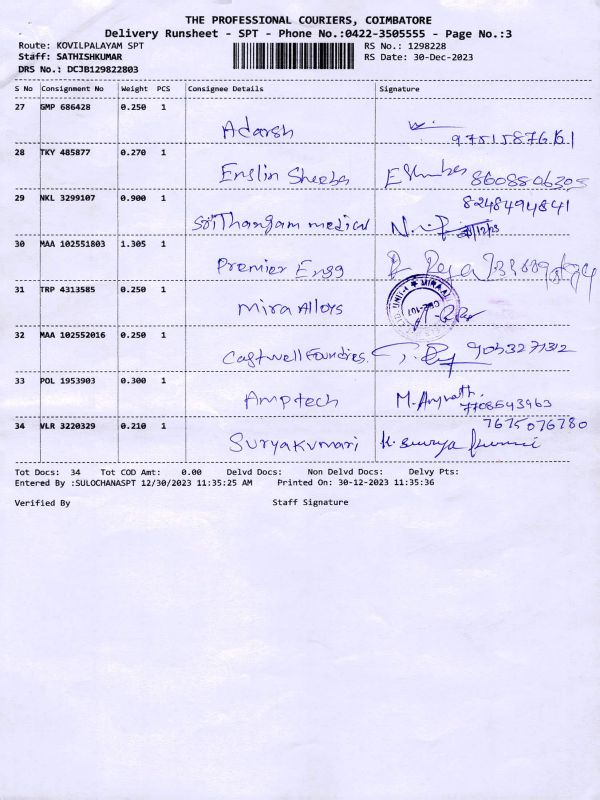 THE PROFESSIONAL COURIERS, COIMBATORE
Delivery Runsheet - SPT - Phone No.:0422-3505555 - Page No.:3
Route: KOVILPALAYAM SPT RS No.: 1298228
Staff: SATHISHKUMAR RS Date: 30-Dec-2023
DRS No.: DCJB129822803
S No Consignment No Weight PCS Consignee Details Signature
27 GMP 686428 0.250 1
Adarsh
28 TKY 485877 0.270 1
Enslin Sheeba 8608806305
29 NKL 3299107 0.900 1 8248494841
Sri Thangam medical
30 MAA 102551803 1.305 1
Premier Engg
31 TRP 4313585 0.250 1
Mira Alloys
32 MAA 102552016 0.250 1
Castwell Foundries.
33 POL 1953903 0.300 1
Amptech
34 VLR 3220329 0.210 1 7675076780
Suryakumari
Tot Docs: 34 Tot COD Amt: 0.00 Delvd Docs: Non Delvd Docs: Delvy Pts:
Entered By :SULOCHANASPT 12/30/2023 11:35:25 AM Printed On: 30-12-2023 11:35:36
Verified By Staff Signature